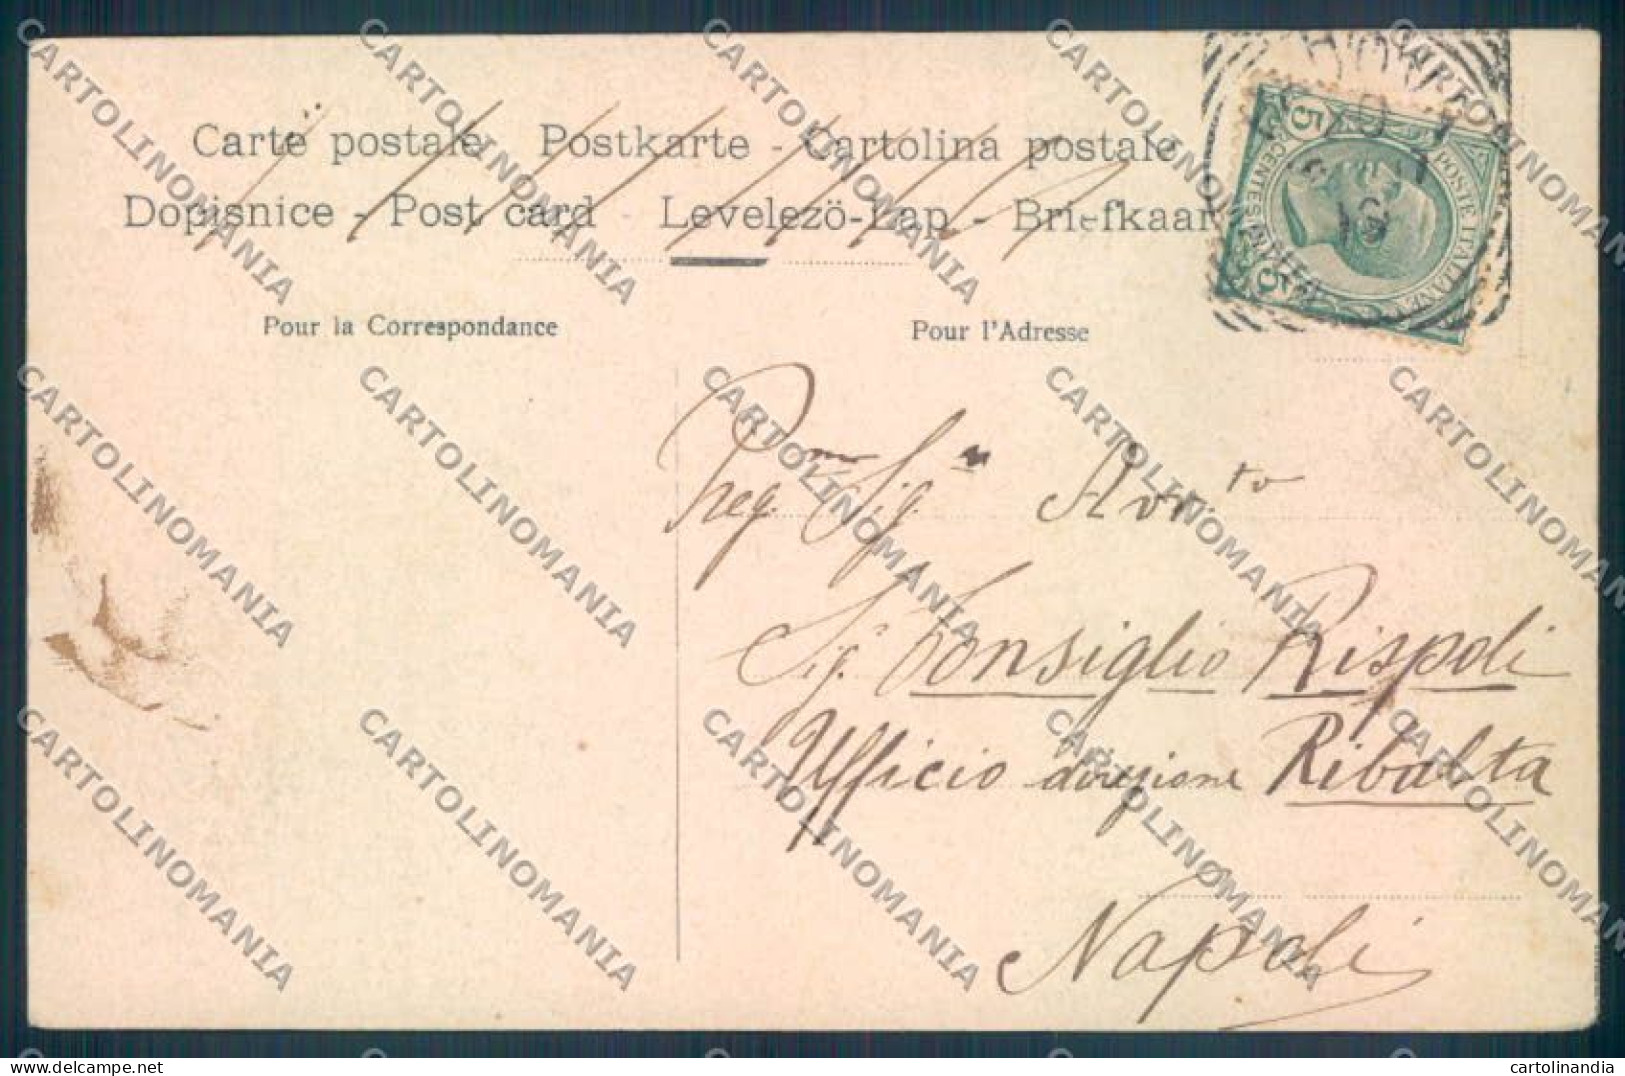 Carte postale - Postkarte - Cartolina postale
Dopisnice - Post card - Levelezö-Lap - Briefkaar
Pour la Correspondance
Pour l'Adresse
POSTE ITALIANE
5 CENTESIMI 5
Preg.mo Sig.
Sig. Consiglio Rispoli
Ufficio direzione Ribalta
Napoli
CARTOLINOMANIA
cartolinandia